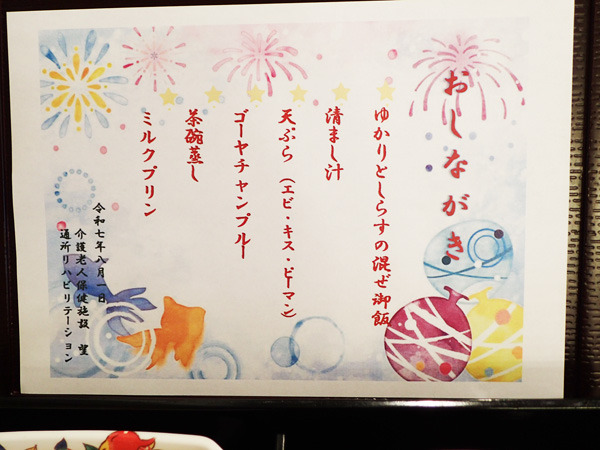 おしながき
ゆかりとしらすの混ぜ御飯
清まし汁
天ぷら（エビ・キス・ピーマン）
ゴーヤチャンプルー
茶碗蒸し
ミルクプリン
令和七年八月一日
介護老人保健施設 望
通所リハビリテーション